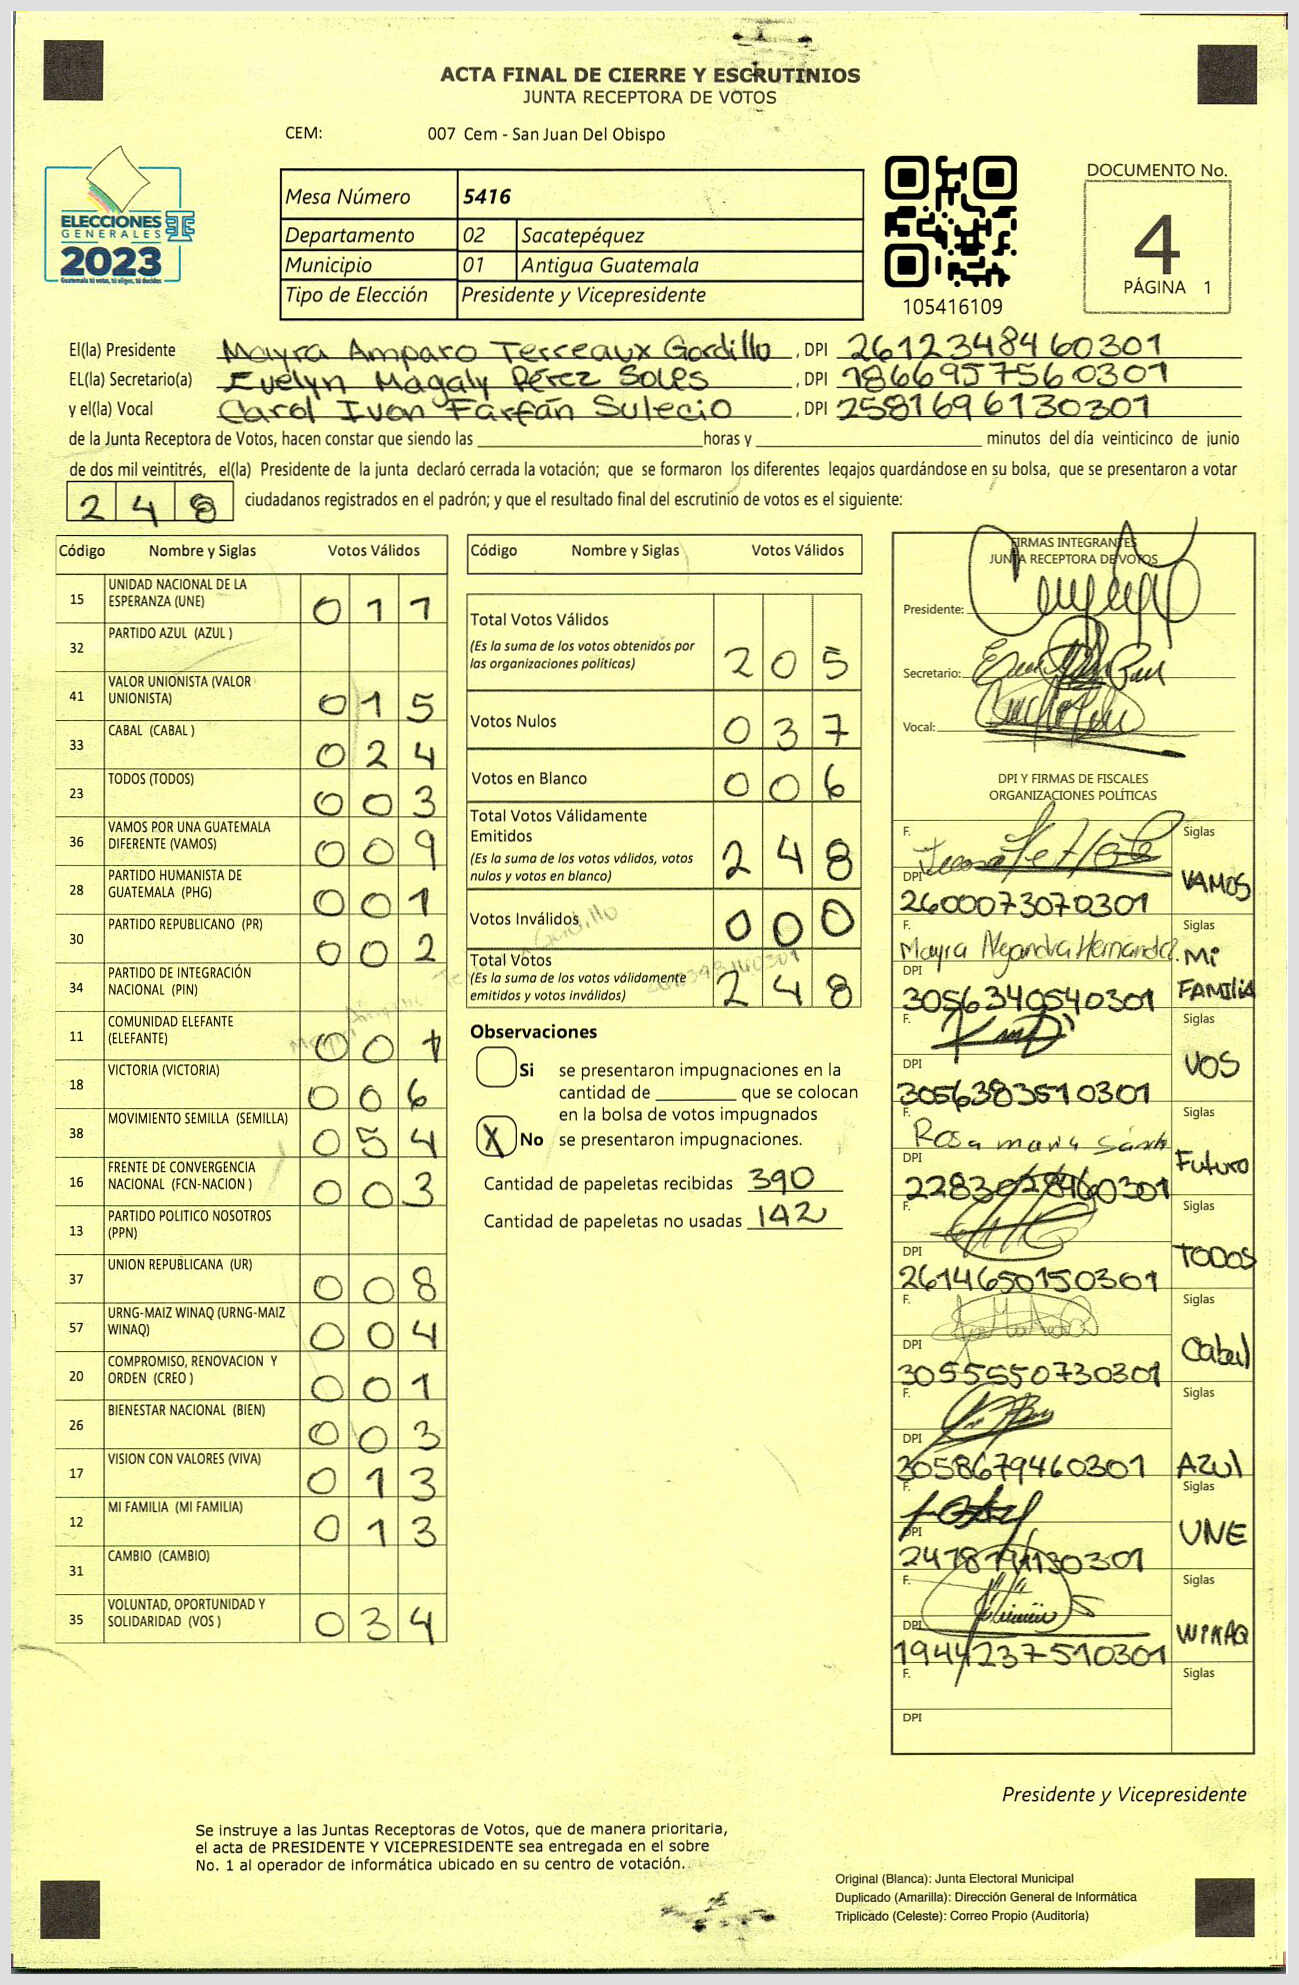 ACTA FINAL DE CIERRE Y ESCRUTINIOS
JUNTA RECEPTORA DE VOTOS
CEM: 007 Cem - San Juan Del Obispo
ELECCIONES
GENERALES
2023
Guatemala tú votas, tú eliges, tú decides
Mesa Número 5416
Departamento 02 Sacatepéquez
Municipio 01 Antigua Guatemala
Tipo de Elección Presidente y Vicepresidente
105416109
DOCUMENTO No.
4
PÁGINA 1
El(la) Presidente Mayra Amparo Terreaux Gordillo , DPI 2612348460301
EL(la) Secretario(a) Evelyn Magaly Pérez Soles , DPI 1866957560301
y el(la) Vocal Carol Ivon Farfán Sulecio , DPI 2581696130301
de la Junta Receptora de Votos, hacen constar que siendo las horas y minutos del día veinticinco de junio
de dos mil veintitrés, el(la) Presidente de la junta declaró cerrada la votación; que se formaron los diferentes legajos quardándose en su bolsa, que se presentaron a votar
248 ciudadanos registrados en el padrón; y que el resultado final del escrutinio de votos es el siguiente:
Código Nombre y Siglas Votos Válidos
15 UNIDAD NACIONAL DE LA ESPERANZA (UNE) 011
32 PARTIDO AZUL (AZUL )
41 VALOR UNIONISTA (VALOR UNIONISTA) 015
33 CABAL (CABAL ) 024
23 TODOS (TODOS) 003
36 VAMOS POR UNA GUATEMALA DIFERENTE (VAMOS) 009
28 PARTIDO HUMANISTA DE GUATEMALA (PHG) 001
30 PARTIDO REPUBLICANO (PR) 002
34 PARTIDO DE INTEGRACIÓN NACIONAL (PIN)
11 COMUNIDAD ELEFANTE (ELEFANTE) 001
18 VICTORIA (VICTORIA) 006
38 MOVIMIENTO SEMILLA (SEMILLA) 054
16 FRENTE DE CONVERGENCIA NACIONAL (FCN-NACION ) 003
13 PARTIDO POLITICO NOSOTROS (PPN)
37 UNION REPUBLICANA (UR) 008
57 URNG-MAIZ WINAQ (URNG-MAIZ WINAQ) 004
20 COMPROMISO, RENOVACION Y ORDEN (CREO ) 001
26 BIENESTAR NACIONAL (BIEN) 003
17 VISION CON VALORES (VIVA) 013
12 MI FAMILIA (MI FAMILIA) 013
31 CAMBIO (CAMBIO)
35 VOLUNTAD, OPORTUNIDAD Y SOLIDARIDAD (VOS ) 034
Código Nombre y Siglas Votos Válidos
Total Votos Válidos
(Es la suma de los votos obtenidos por
las organizaciones políticas) 205
Votos Nulos 037
Votos en Blanco 006
Total Votos Válidamente
Emitidos
(Es la suma de los votos válidos, votos
nulos y votos en blanco) 248
Votos Inválidos 000
Total Votos
(Es la suma de los votos válidamente
emitidos y votos inválidos) 248
Observaciones
Si se presentaron impugnaciones en la
cantidad de que se colocan
en la bolsa de votos impugnados
X No se presentaron impugnaciones.
Cantidad de papeletas recibidas 390
Cantidad de papeletas no usadas 142
FIRMAS INTEGRANTES
JUNTA RECEPTORA DE VOTOS
Presidente:
Secretario:
Vocal:
DPI Y FIRMAS DE FISCALES
ORGANIZACIONES POLÍTICAS
F. Siglas
DPI VAMOS
2600073070301
F. Mayra Alejandra Hernandez. Siglas
DPI Mi FAMiliA
3056340540301
F. Siglas
DPI VOS
3056383510301
F. Rosa maria Siglas
DPI Futuro
2283028460301
F. Siglas
DPI TODOS
2614650150301
F. Siglas
DPI Cabal
3055550730301
F. Siglas
DPI
3058679460301 AZUL
F. Siglas
DPI UNE
F. Siglas
DPI WINAQ
1944237510301
F. Siglas
DPI
Presidente y Vicepresidente
Se instruye a las Juntas Receptoras de Votos, que de manera prioritaria,
el acta de PRESIDENTE Y VICEPRESIDENTE sea entregada en el sobre
No. 1 al operador de informática ubicado en su centro de votación.
Original (Blanca): Junta Electoral Municipal
Duplicado (Amarilla): Dirección General de Informática
Triplicado (Celeste): Correo Propio (Auditoría)